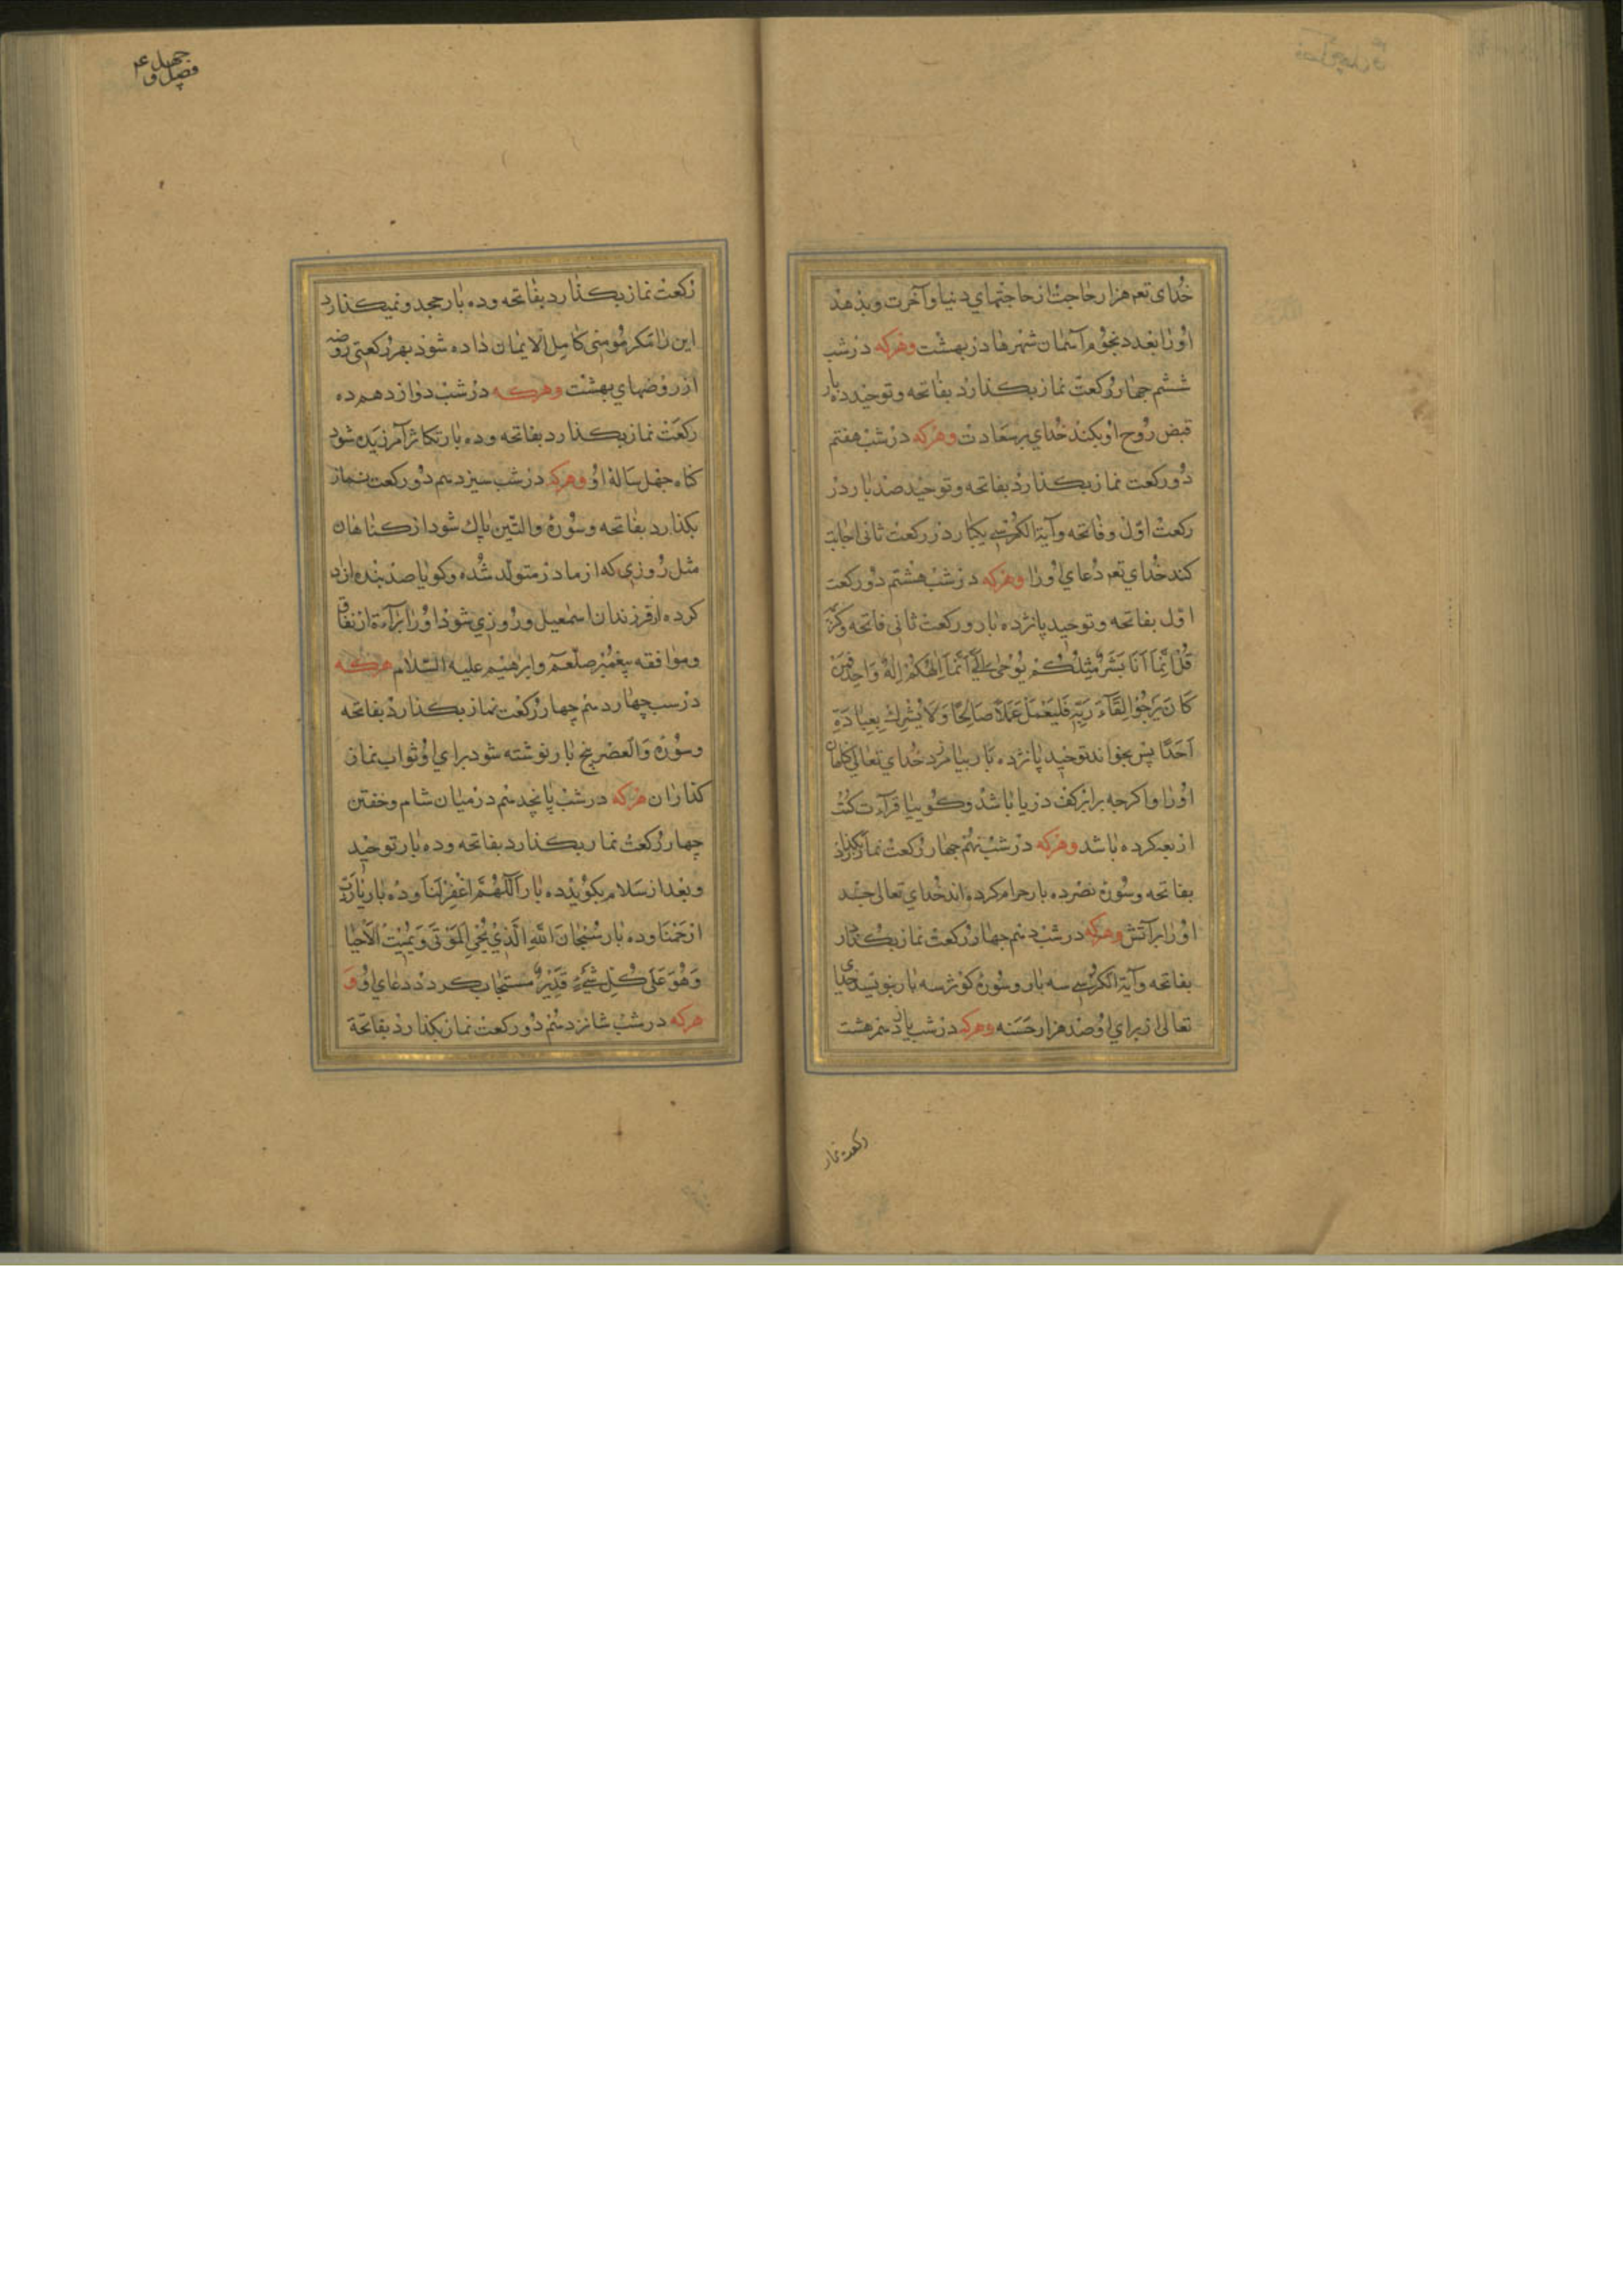 خُدای تعم هزار حاجت از حاجتهاي دنیا و آخرت و بدهد
اورا بعدد نجوم آسمان شهرها در بهشت وهرکه در شب
ششم چهار رکعت نماز بکذارد بفاتحه و توحید ده بار
قبض روح او بکند خدای بر سعادت وهرکه در شب هفتم
دو رکعت نماز بکذارد بفاتحه و توحید صد بار در
رکعت اول و فاتحه و آیة الکرسی یکبار در رکعت ثانی اجابت
کند خدای تعم دعای اورا وهرکه در شب هشتم دو رکعت
اول بفاتحه و توحید پانزده بار و رکعت ثانی فاتحه و
قُلْ اِنَّمَا اَنَا بَشَرٌ مِثْلُكُمْ يُوحٰى اِلَيَّ اَنَّمَا اِلٰهُكُمْ اِلٰهٌ وَاحِدٌ فَمَنْ
كَانَ يَرْجُوا لِقَاءَ رَبِّهِ فَلْيَعْمَلْ عَمَلًا صَالِحًا وَلَا يُشْرِكْ بِعِبَادَةِ
اَحَدًا پس بخواند توحید پانزده بار بیامرزد خدای تعالی کناهان
اورا واکرچه برابر کف دریا باشد و کوییا قرآءت کتب
اربعه کرده باشد وهرکه در شب نهم چهار رکعت نماز بکذارد
بفاتحه و سوره نصر ده بار حرام کرده اند خدای تعالی جسد
اورا بر آتش وهرکه در شب دهم چهار رکعت نماز بکذارد
بفاتحه و آیة الکرسی سه بار و سوره کوثر سه بار بنویسد خدای
تعالی از برای او صد هزار حسنه وهرکه در شب یازدهم هشت
رکعت نماز
چهل ۴
فصل و
رکعت نماز بکذارد بفاتحه و ده بار جحد و نمیکذارد
این را مکر مؤمنی کامل الایمان داده شود بهر رکعتی روضه
از روضهاي بهشت وهرکه در شب دوازدهم ده
رکعت نماز بکذارد بفاتحه و ده بار تکاثر آمرزیده شود
کناه چهل ساله او وهرکه در شب سیزدهم دو رکعت نماز
بکذارد بفاتحه و سوره والتین پاك شود از کناهان
مثل روزی که از مادر متولد شده و کویا صد بنده ازاد
کرده از فرزندان اسمعیل و روزی شود اورا برآءة از نفاق
و موافقه پیغمبر صلعم و ابرهیم علیه السلام هرکه
در سب چهاردهم چهار رکعت نماز بکذارد بفاتحه
و سوره والعصر پنج بار نوشته شود برای او ثواب نماز
کذاران هرکه در شب پانجدهم در میان شام و خفتن
چهار رکعت نماز بکذارد بفاتحه و ده بار توحید
و بعد از سلام بکوید ده بار اَللّٰهُمَّ اغْفِرْ لَنَا و ده بار یَارَبِّ
ارْحَمْنَا و ده بار سُبْحَانَ اللهِ الَّذِي يُحْيِي الْمَوْتٰى وَيُمِيتُ الْاَحْيَا
وَهُوَ عَلٰى كُلِّ شَيْءٍ قَدِيرٌ مستجاب کردد دعای او و
هرکه در شب شانزدهم دو رکعت نماز بکذارد بفاتحة